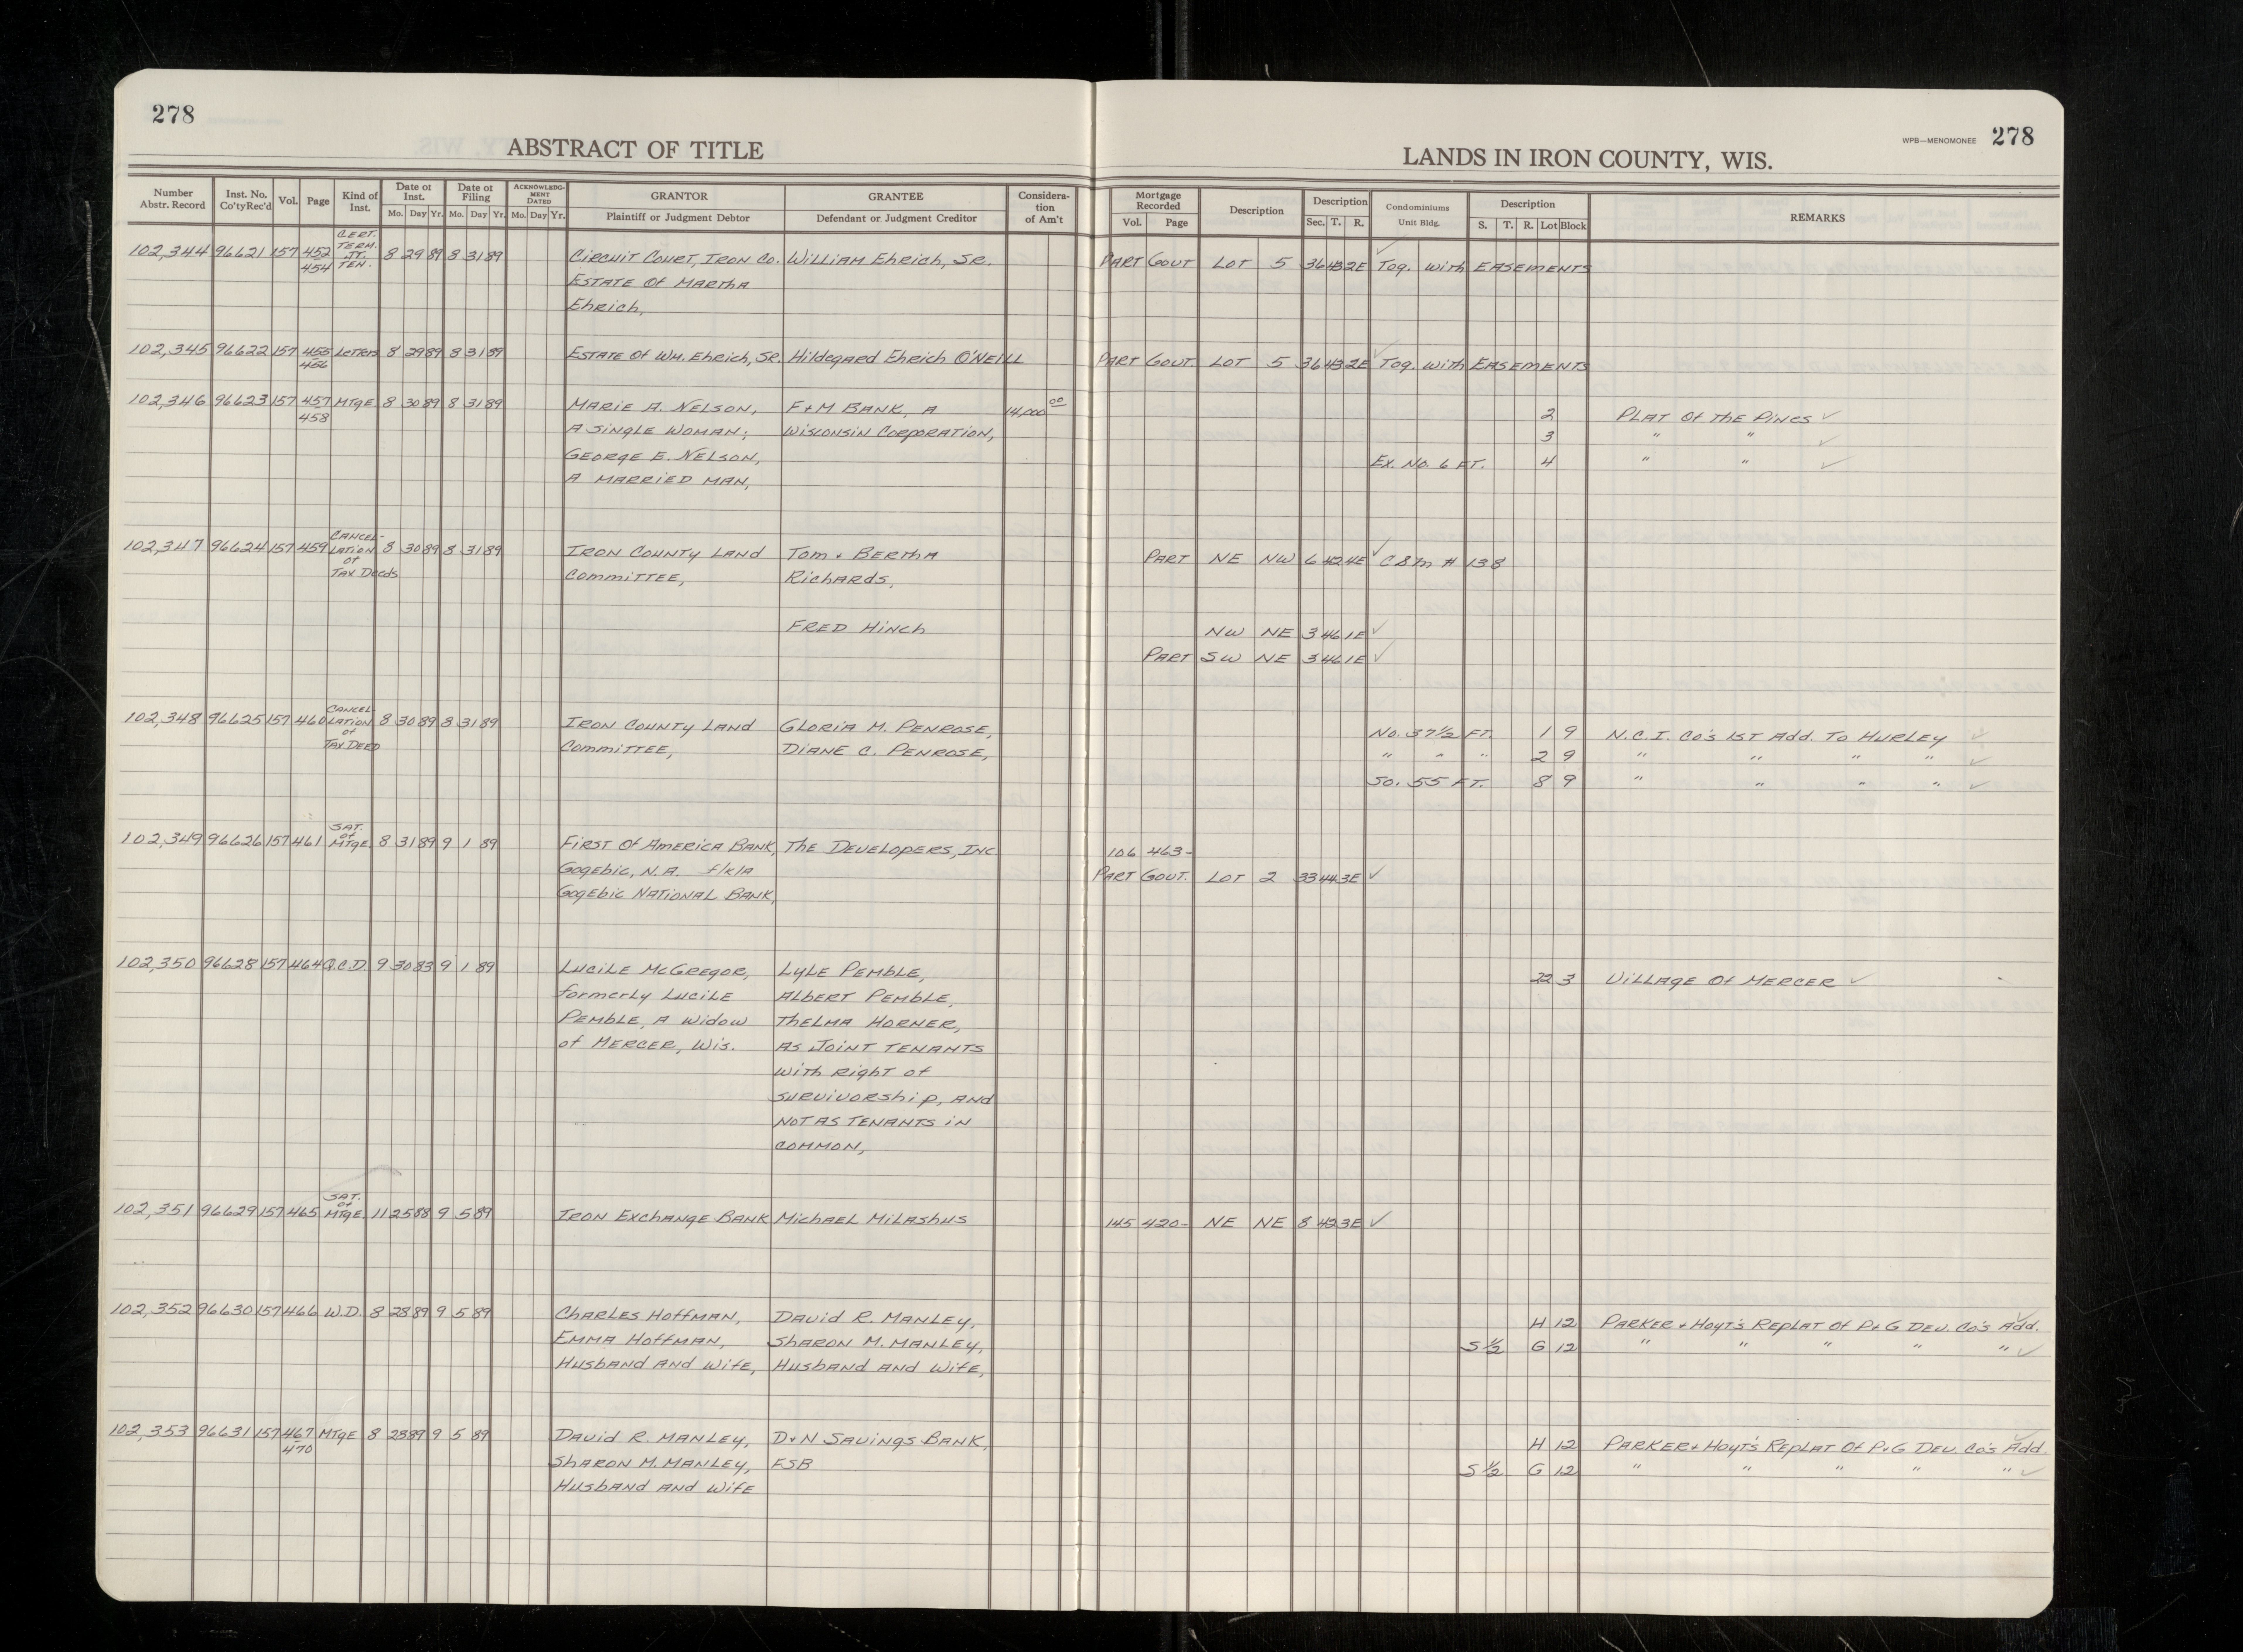 278
ABSTRACT OF TITLE
LANDS IN IRON COUNTY, WIS.
WPB—MENOMONEE 278
Number Abstr. Record | Inst. No. Co'tyRec'd | Vol. | Page | Kind of Inst. | Date of Inst. Mo. Day Yr. | Date of Filing Mo. Day Yr. | ACKNOWLEDGMENT DATED Mo. Day Yr. | GRANTOR Plaintiff or Judgment Debtor | GRANTEE Defendant or Judgment Creditor | Consideration of Am't | Mortgage Recorded Vol. Page | Description | Description Sec. T. R. | Condominiums Unit Bldg. | Description S. T. R. Lot Block | REMARKS
102,344 96621 157 452 454 CERT. TERM. JT. TEN. 8 29 89 8 31 89 Circuit Court, Iron Co. William Ehrich, Sr. PART GOVT LOT 5 36 43 2E ✓ Tog. with EASEMENTS
ESTATE Of MARTHA
Ehrich,
102,345 96622 157 455 456 Letters 8 29 89 8 31 89 ESTATE Of Wm. Ehrich, Sr. Hildegard Ehrich O'NEILL PART GOVT. LOT 5 36 43 2E ✓ Tog. with EASEMENTS
102,346 96623 157 457 458 MTGE 8 30 89 8 31 89 MARIE A. NELSON, F+M BANK, A 14,000 00 2 PLAT Of The PINES ✓
A SINGLE WOMAN; WISCONSIN CORPORATION, 3 " " ✓
GEORGE E. NELSON, Ex. No. 6 FT. 4 " " ✓
A MARRIED MAN,
102,347 96624 157 459 CANCELLATION of Tax Deeds 8 30 89 8 31 89 IRON COUNTY LAND Tom + BERTHA PART NE NW 6 42 4E ✓ CSM # 138
Committee, Richards,
FRED HINCH NW NE 3 46 1E ✓
PART SW NE 3 46 1E ✓
102,348 96625 157 460 CANCELLATION of TAX DEED 8 30 89 8 31 89 IRON COUNTY LAND GLORIA M. PENROSE, No. 37 1/2 FT. 1 9 N.C.I. Co's 1ST Add. To HURLEY ✓
Committee, DIANE C. PENROSE, " " " 2 9 " " " " ✓
So. 55 FT. 8 9 " " " " ✓
102,349 96626 157 461 SAT. of MTGE 8 31 89 9 1 89 FIRST Of America BANK, The DEVELOPERS, INC 106 463-
Gogebic, N.A. f/k/a PART GOVT. LOT 2 33 44 3E ✓
Gogebic NATIONAL BANK,
102,350 96628 157 464 Q.C.D. 9 30 83 9 1 89 LUCILE McGREGOR, LYLE PEMBLE, 22 3 VILLAGE Of MERCER ✓
formerly LUCILE ALBERT PEMBLE,
PEMBLE, A Widow THELMA HORNER,
of MERCER, Wis. As JOINT TENANTS
With Right of
SURVIVORSHIP, AND
NOT AS TENANTS IN
COMMON,
102,351 96629 157 465 SAT. of MTGE 11 25 88 9 5 89 IRON Exchange BANK MICHAEL MILASHUS 145 420- NE NE 8 42 3E ✓
102,352 96630 157 466 W.D. 8 28 89 9 5 89 CHARLES Hoffman, David R. MANLEY, H 12 PARKER + Hoyt's Replat Of P+G DEV. Co's Add. ✓
EMMA Hoffman, SHARON M. MANLEY, S 1/2 G 12 " " " " " ✓
Husband And Wife, Husband and Wife,
102,353 96631 157 467 470 MTGE 8 28 89 9 5 89 David R. MANLEY, D+N SAVINGS BANK, H 12 PARKER + Hoyt's Replat Of P+G DEV. Co's Add. ✓
SHARON M. MANLEY, FSB S 1/2 G 12 " " " " " ✓
Husband and Wife